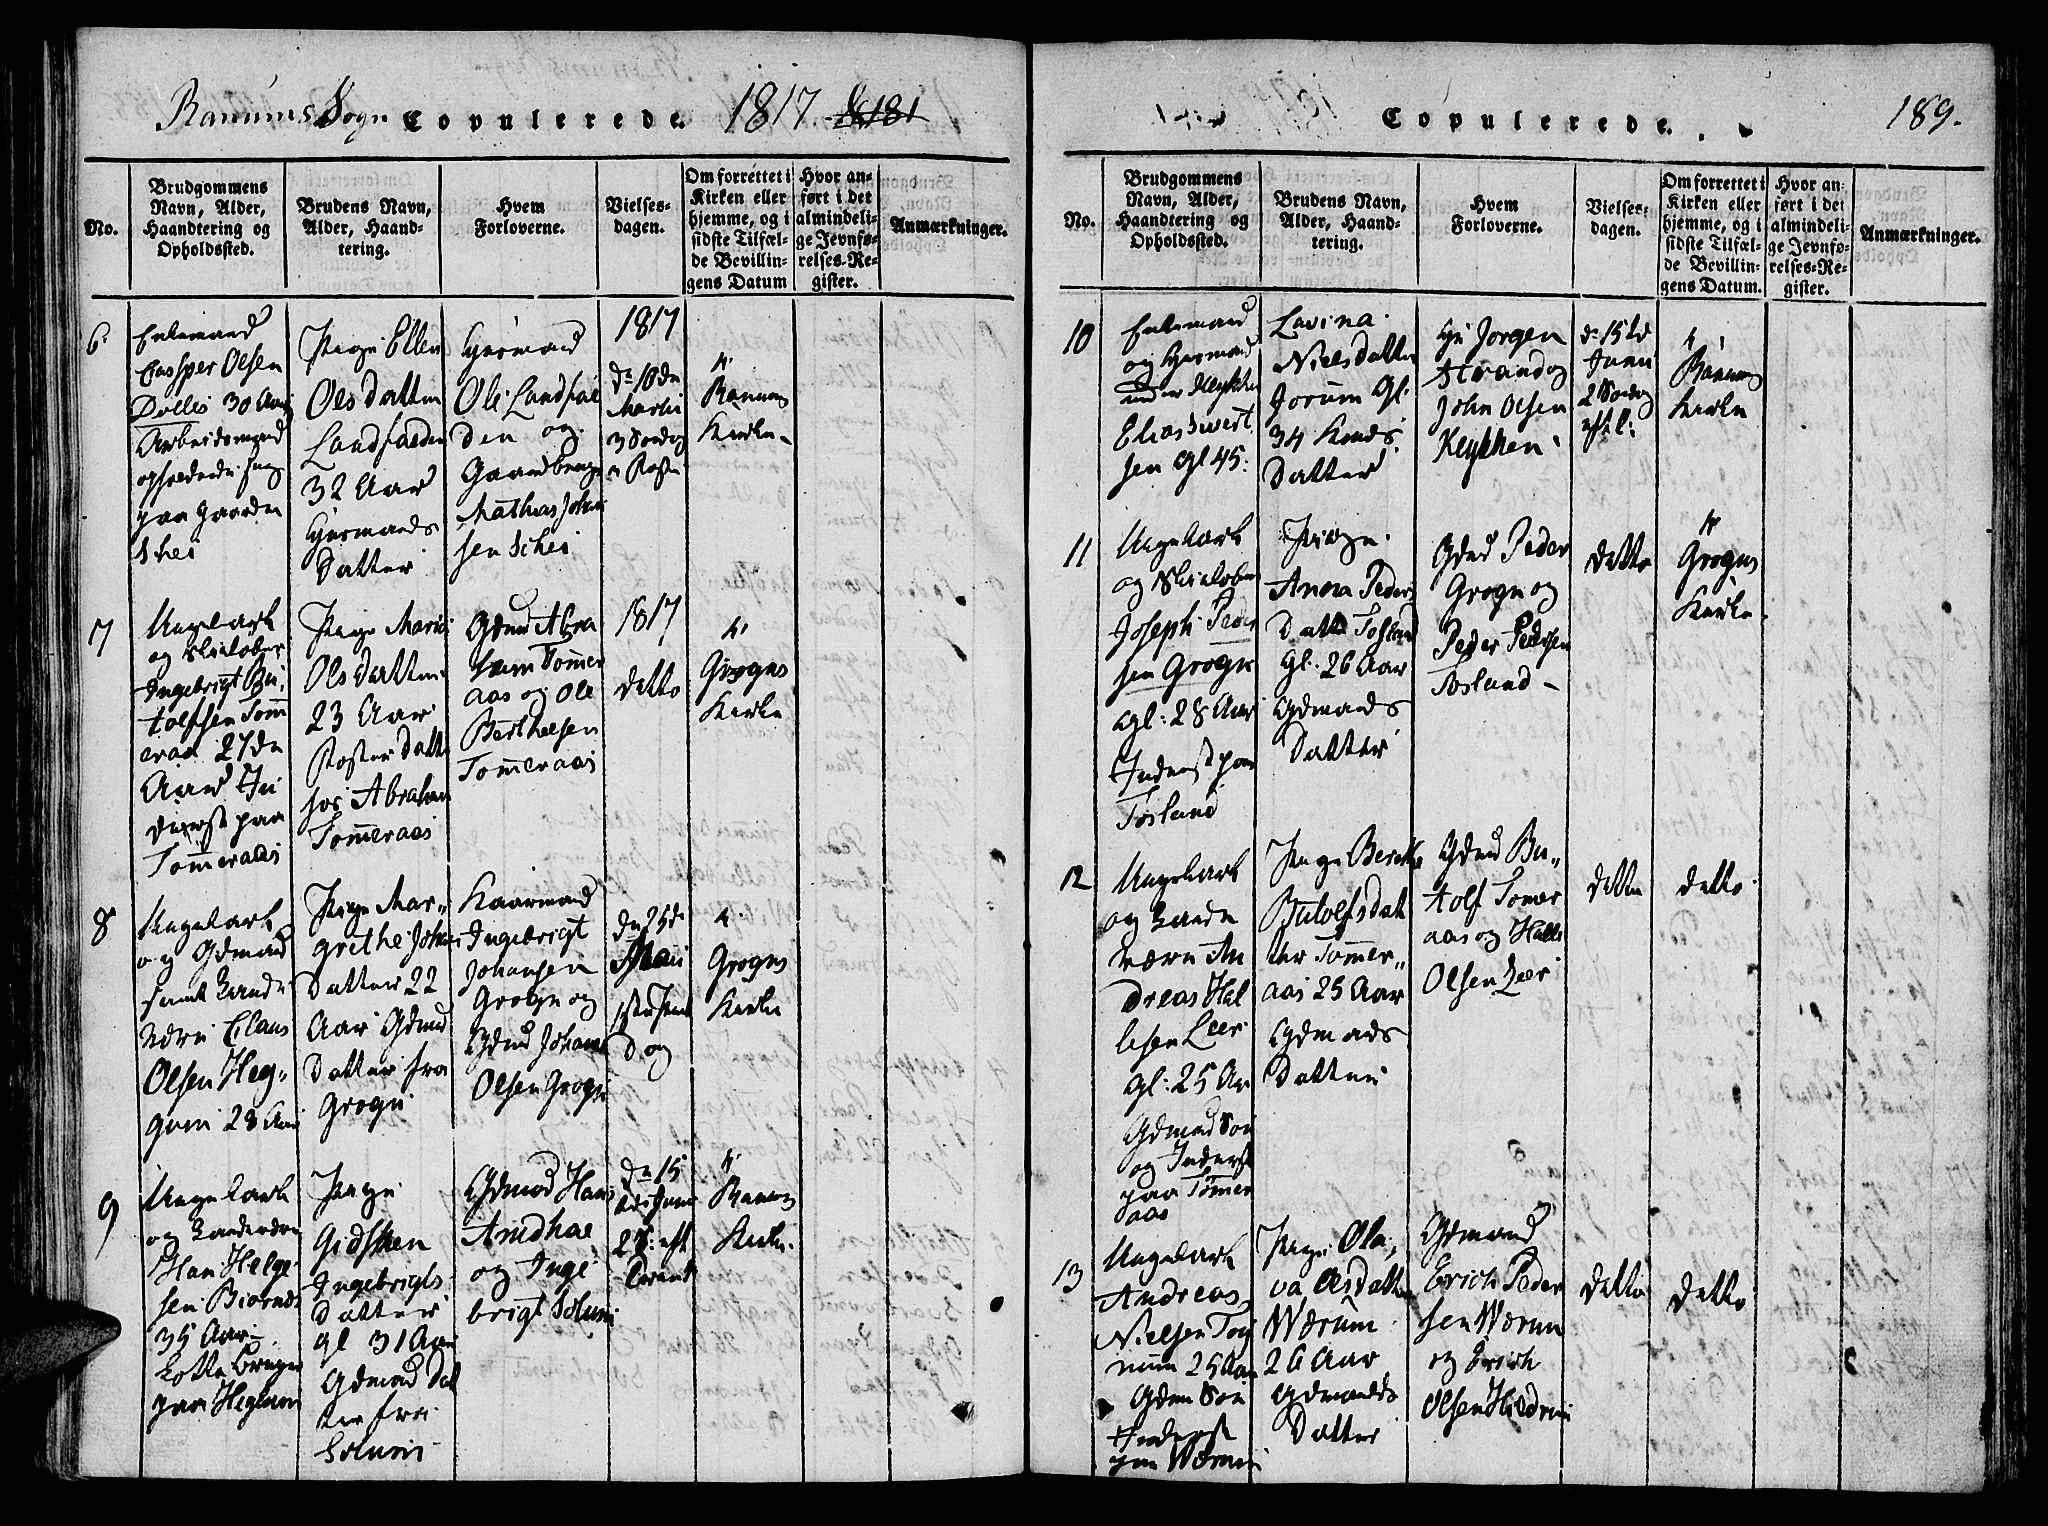 Ranums Sogn Copulerede. 1817.
No.
Brudgommens
Navn, Alder,
Haandtering og
Opholdssted.
Brudens Navn,
Alder, Haand-
tering.
Hvem
Forloverne.
Vielses-
dagen.
Om forrettet i
Kirken eller
hjemme, og i
sidste Tilfæl-
de Bevillin-
gens Datum
Hvor an-
ført i det
almindeli-
ge Jevnfø-
relses-Re-
gister.
Anmærkninger.
6.
Enkemand
Casper Olsen
30 Aar
Arbeidsmand
paa Gaarden
Schei
Pige Ellen
Olsdatter
Landfalden
32 Aar
Huusmands
Datter
Huusmand
Ole Landfal
den og
Gaardbruger
Mathias Johan
sen Schei
1817
Martii
K.
Ranums
Kirke
7
Ungkarl
og Skieløber
Ingebrigt Bu,
tolfsen Tøm
eraas 27de
Aar In
derst paa
Tømeraas
Pige Maria
Olsdatter
23 Aar
Foster Datter
hos Abraham
Tømeraas
Gdmd Abra
ham Tømer
aas og Ole
Berthelsen
Tømeraas
1817
detto
K.
Grogns
Kirke
8
Ungkarl
og Gdmand
samt Lande
værn Claus
Olsen Heg„
gum 28 Aar
Pige Mar„
grethe Johans
Datter 22
Aar Gdmd
Datter fra
Grogn
Kaarmand
Ingebrigt
Johansen
Grogn og
Gdmd Johan
Olsen Grogn
den 25de
Mai
Dag
K.
Grogns
Kirke
9
Ungkarl
og Landeværn
Hans Helge
sen Biørnes
35 Aar
paa Heglum
Pige
Gidsken
Ingebrigts
Datter
gl 31 Aar
Gdmand Dat
ter fra
Solum
Gdmd Hans
Amdhal
og Inge
brigt Solum
den 15
Juni
K.
Ranums
Kirke.
Copulerede. 189.
No.
Brudgommens
Navn, Alder,
Haandtering og
Opholdssted.
Brudens Navn,
Alder, Haand-
tering.
Hvem
Forloverne.
Vielses-
dagen.
Om forrettet i
Kirken eller
hjemme, og i
sidste Tilfæl-
de Bevillin-
gens Datum.
Hvor an-
ført i det
almindeli-
ge Jevnfø-
relses-Re-
gister.
Anmærkninger.
10
Enkemand
og Huusmand
under Klykken
Elias Sivert
sen gl 45.
Lavina
Nielsdatter
Jorum gl.
34
Datter
Jørgen
Strand og
John Olsen
Klykken
d: 15de
Junii
K.
Ranums
Kirke
11
Ungkarl
og Skieløber
Joseph Peder
sen Grogn
gl: 28 Aar
Inderst paa
Fosland
Pige
Anna Peders
Datter Fosland
gl: 26 Aar
Gdmands
Datter
Gdmd Peder
Grogn og
Peder Pedersen
Fosland
detto
K.
Grogns
Kirke
12
Ungkarl
og Lande
værn An
dreas Hal
lesen Leer
gl: 25 Ar
Gdmand Søn
og Inderst
paa Tømer
aas
Pige Berethe
Butolfsdat
ter Tømer„
aas 25 Aar
Gdmands
Datter
Gdmd Bu„
tolf Tømer
aas og Halle
Olsen Leer
detto
detto
13
Ungkarl
Andreas
Nielsen
25 Aar
Gdmd Søn
Inderst
paa Wærum
Pige Ola„
va Olsdatter
Wærum
26 Aar
Gdmands
Datter
Gdmand
Erich Peder
sen Wærum
og Erich
Olsen Hildrem
detto
detto